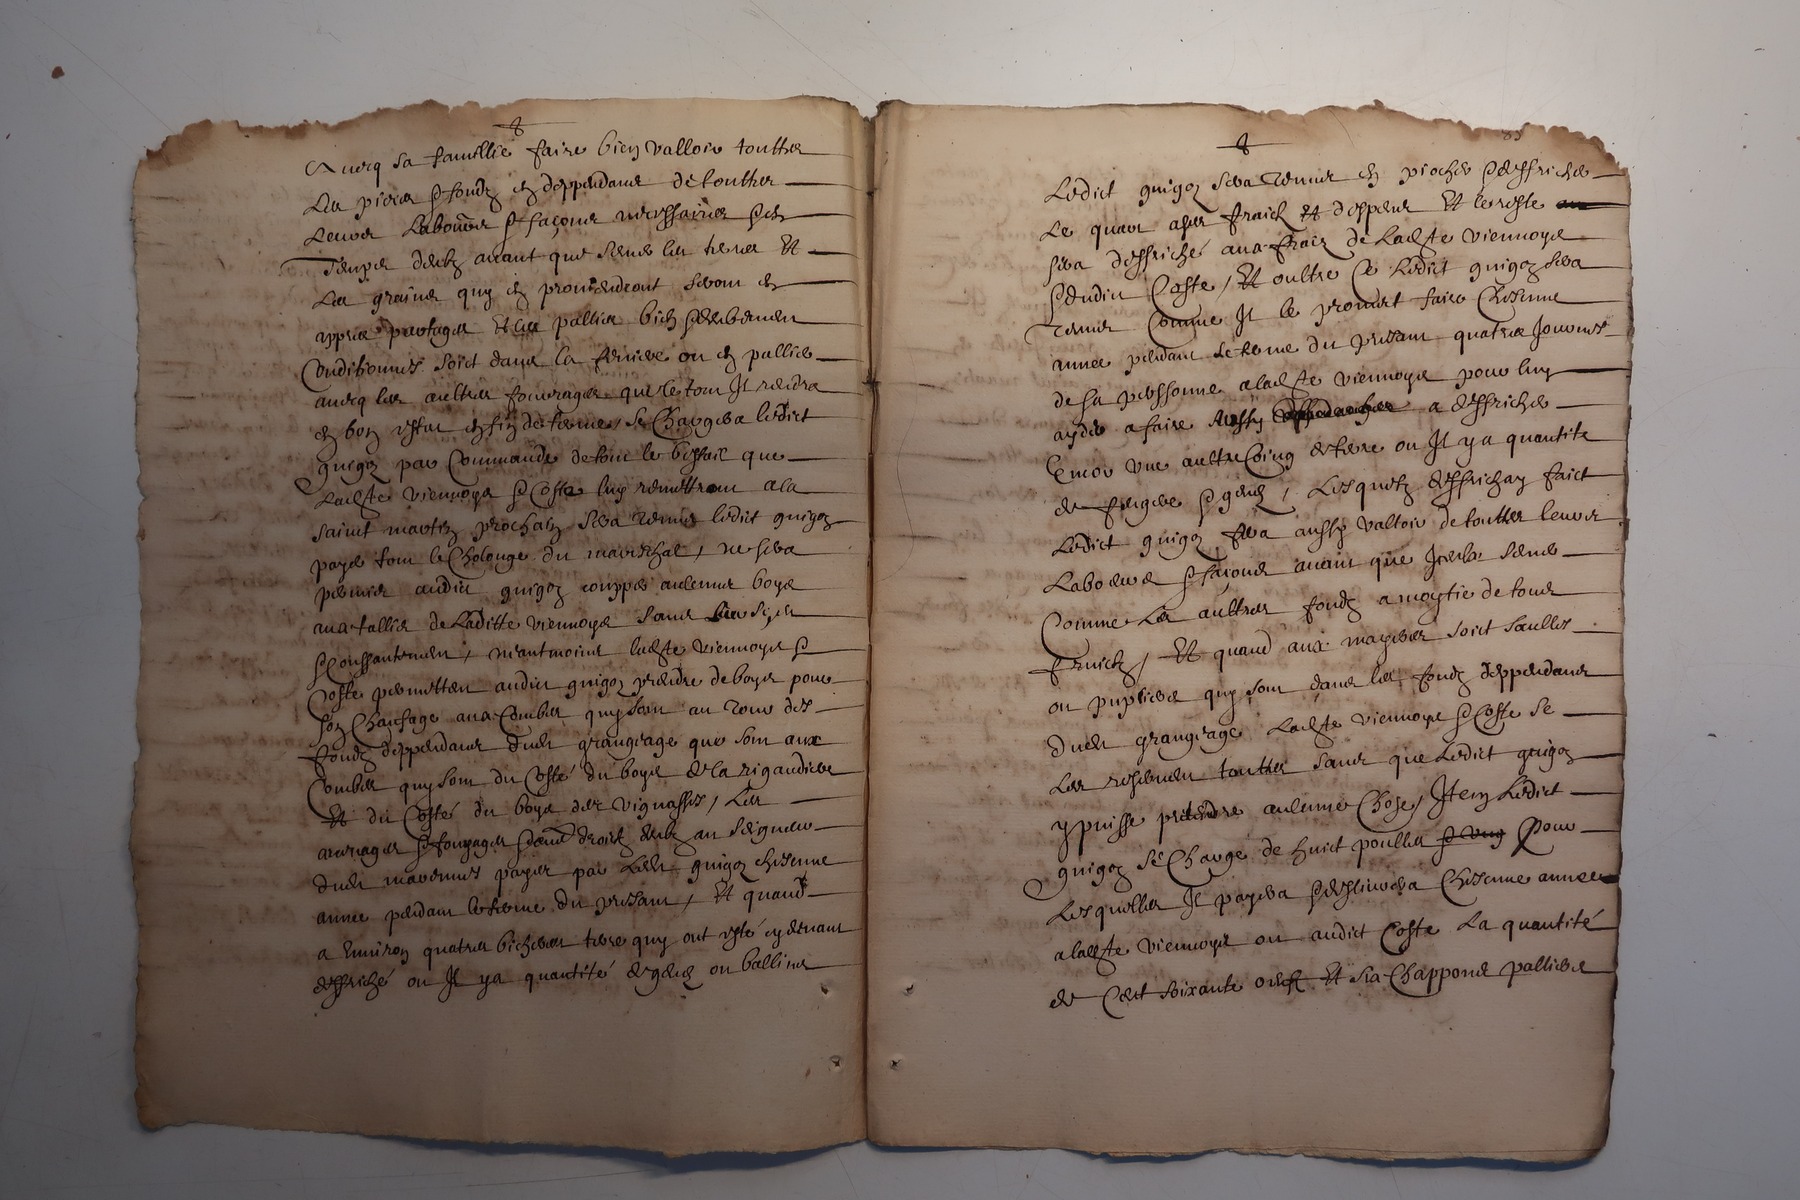 Avecq sa famillie faire bien valloir touttes
Les pieces & fondz en deppendans de touttes
Leurs Labours & façons necessaires & en
Temps deubz avant que semer les terres Et
Les grains quy en proviendront seront en
appres partages Et les pallies bien & deubemen
Conditionnes soict dans la feniere ou en pallier
avecq les aultres fourages que le tout Il rendra
en bon estat en fin de ferme, se Chargera ledict
guigoz par Commande de tout le bestail que
Ladte viennoys & Coste luy remettron a la
saint martin prochain sera tenus ledict guigoz
payer tout le Cholonge du mareschal, ne sera
permis audict guigoz coupper aulcuns boys
aux tallies de Laditte viennoys sans
& Conssantemen, neantmoins ladte viennoys &
Coste permetten audict guigoz prendre de boys pour
son Chaufage aux Combes quy son au tour des
fondz deppendans dudt grangeage que son aux
Combes quy son du Costé du boys de la rigaudiere
Et du Costé du boys des vignasses, Les
arerages & fouages & aues droictz deubz au seigneur
dudt payes par Ledt guigoz chescune
annee pendan le terme du presant, Et quand
a Environ quatres bicheres terre quy ont esté cydevant
deffriché ou Il ya quantité de gens ou ballins
8
Ledict guigoz sera tenus en piocher & deffricher
Le quart a ses fraictz et despens Et le reste
sera deffriché aux fraiz de Ladte viennoys
& dudict Coste, Et oultre Ce Ledict guigoz sera
Tenus Comme Il le promet faire Chescune
annee pendant le terme du presant quatres Journes
de sa perssonne a ladte viennoys pour luy
ayder a faire a deffricher
Encor une aultre Coing de terre ou Il ya quantite
de feugere & gens, Lesquelz deffrichan faict
Ledict guigoz fera aussy valloir de touttes leurs
Labeurs & façons avant que Jceulx semer
Comme Les aultres fondz a moytie de tous
fruictz, Et quand aux mayeres soict saulles
ou pupliers quy son dans les fondz deppendans
dudt grangeage Ladte viennoys & Coste se
Les reserven touttes sans que Ledict guigoz
y puisse pretendre aulcune Chose, Item Ledict
guigoz se Charge de huict poulles Pour
Lesquelles Il payera & deslivrera Chescune annee
a ladte viennoys ou audict Coste La quantité
de Cent soixante oeufz Et six Chappons pallies